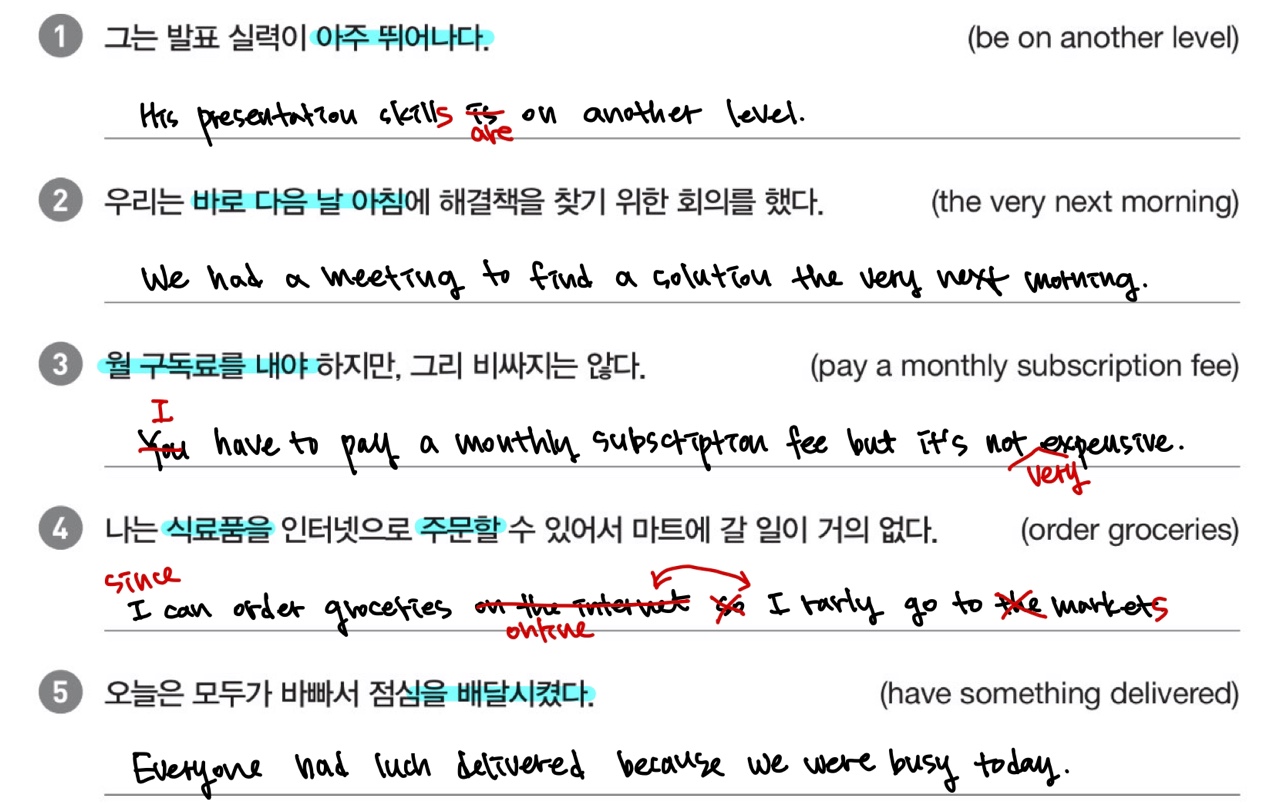 1 그는 발표 실력이 아주 뛰어나다. (be on another level)
His presentation skills is on another level.
are
2 우리는 바로 다음 날 아침에 해결책을 찾기 위한 회의를 했다. (the very next morning)
We had a meeting to find a solution the very next morning.
3 월 구독료를 내야 하지만, 그리 비싸지는 않다. (pay a monthly subscription fee)
I
You have to pay a monthly subscription fee but it's not expensive.
very
4 나는 식료품을 인터넷으로 주문할 수 있어서 마트에 갈 일이 거의 없다. (order groceries)
since
I can order groceries on the internet so I rarly go to the markets
online
5 오늘은 모두가 바빠서 점심을 배달시켰다. (have something delivered)
Everyone had luch delivered because we were busy today.